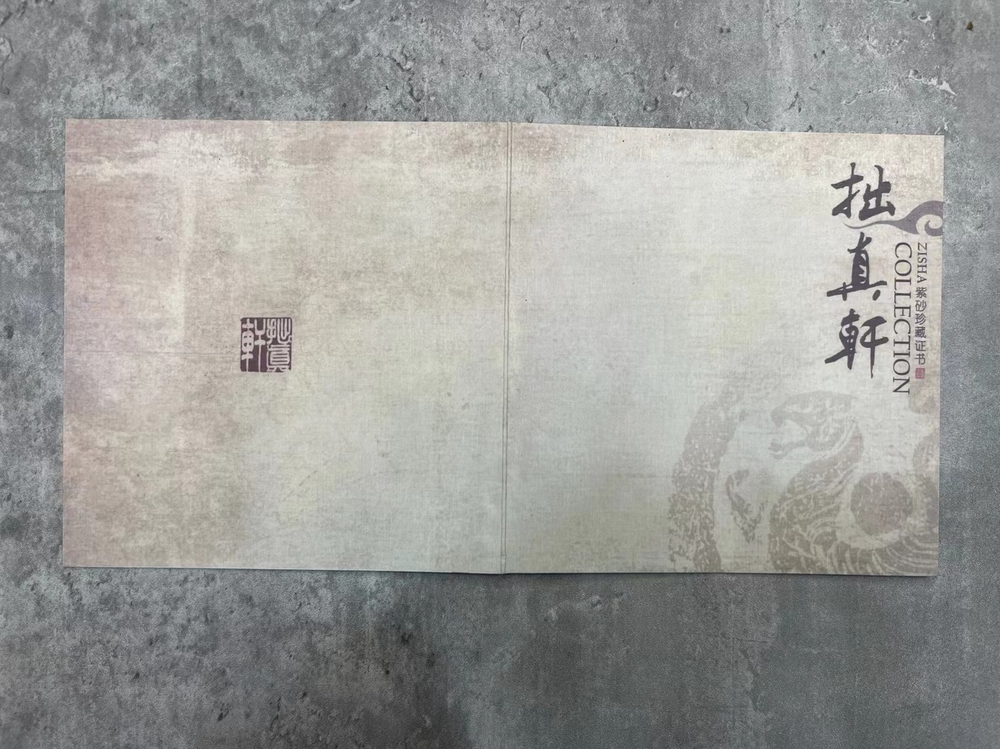 拙真軒
ZISHA 紫砂珍藏证书
COLLECTION
拙真軒